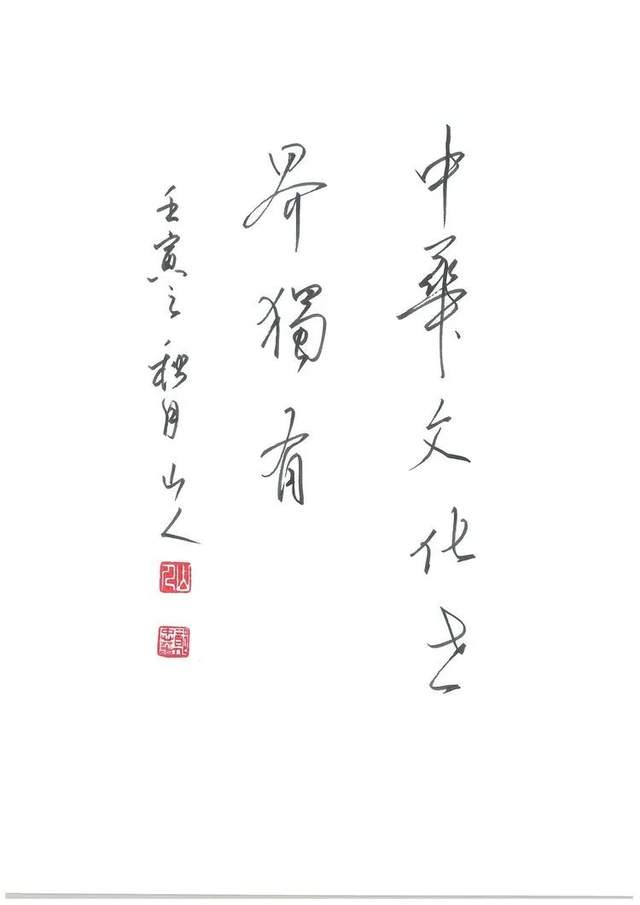 中華文化世
界獨有
壬寅之秋月山人
山人